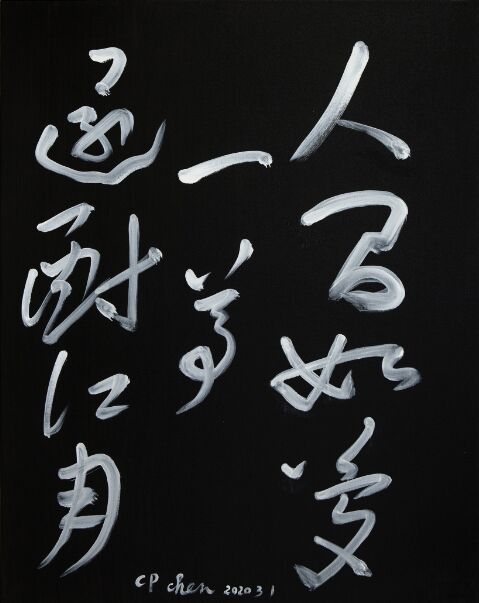 人間如夢
一尊
還酹江月
CP chen 2020 3 1